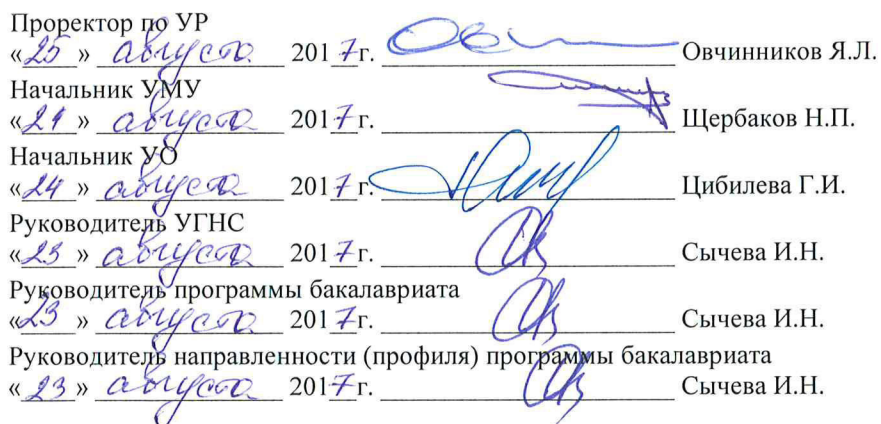 Проректор по УР
«25» августа 2017г. Овчинников Я.Л.
Начальник УМУ
«21» августа 2017г. Щербаков Н.П.
Начальник УО
«24» августа 2017г. Цибилева Г.И.
Руководитель УГНС
«23» августа 2017г. Сычева И.Н.
Руководитель программы бакалавриата
«23» августа 2017г. Сычева И.Н.
Руководитель направленности (профиля) программы бакалавриата
«23» августа 2017г. Сычева И.Н.